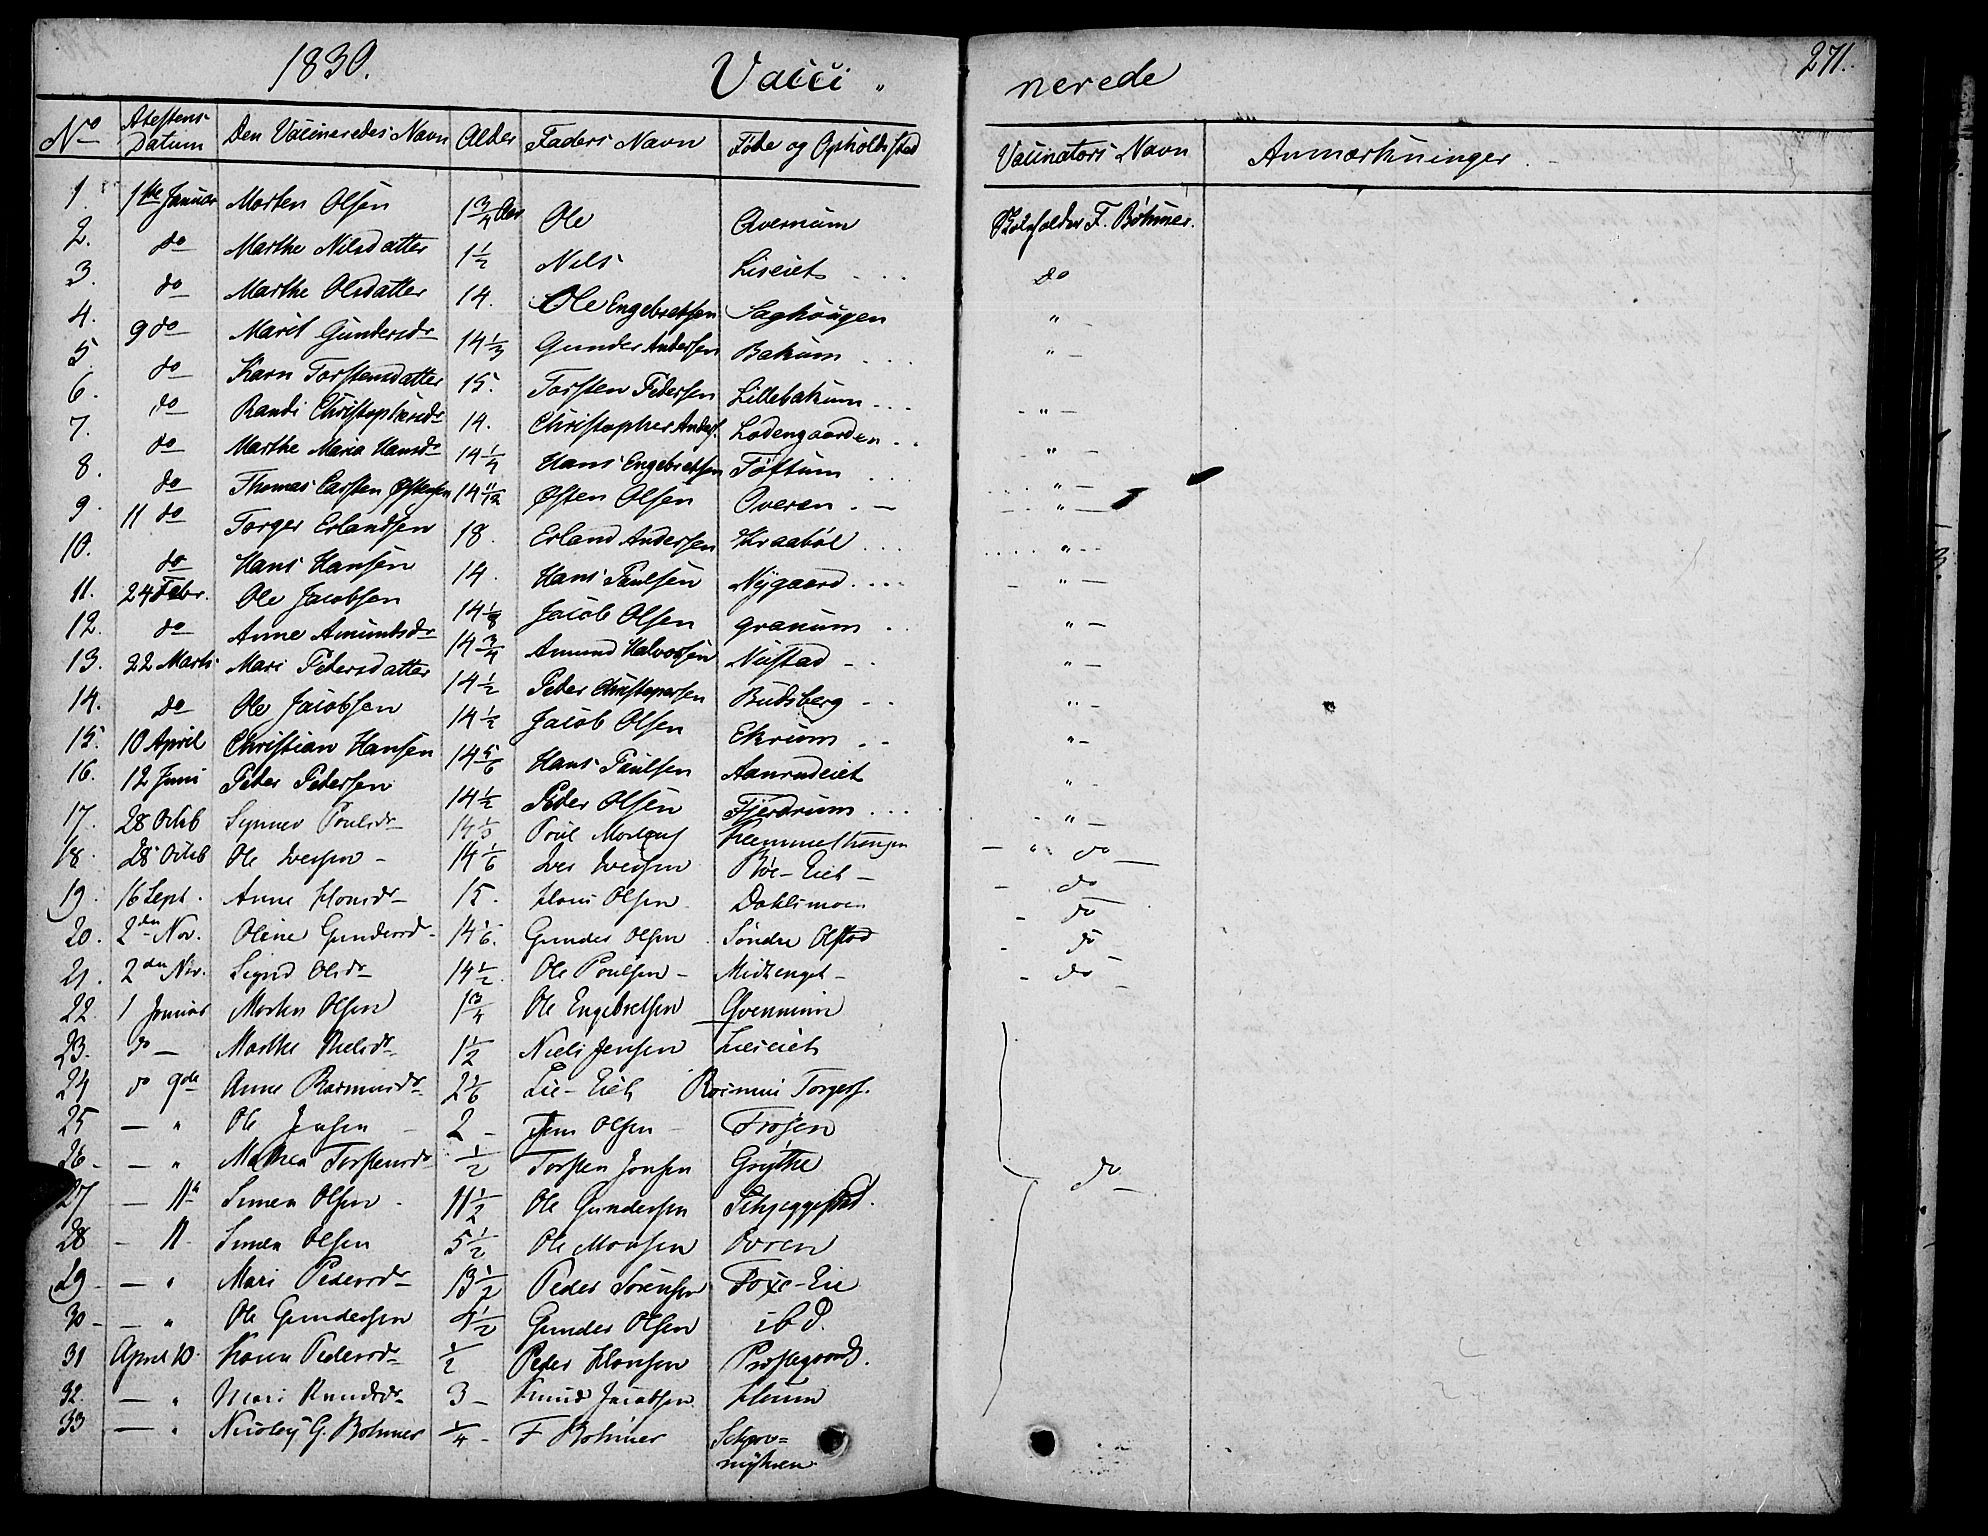 1830. Vacci „ nerede 271.
No Atestens Datum Den Vacineredes Navn Alder Faders Navn Føde og Opholdsstad Vacinators Navn Anmærkninger.
1. 1ste Januar Morten Olsen 1 3/4 Aar Ole Qvernum F. Bøhmer.
2. do Marthe Nilsdatter 1 1/2 Nils Lieeiet do
3. do Marthe Olsdatter 14. Ole Engebretsen Saghougen "
4. 9 do Marit Gundersdr 14 1/3 Gunder Andersen Bakum "
5 do Karn Torstensdatter 15. Torsten Pedersen Lillebakum "
6. do Randi Christophersdr 14. Christopher Anders. Ladengaarden "
7. do Marthe Maria Hansdr 14 1/4 Hans Engebretsen Toftum "
8. do Thomas Carsten Østensen 14 11/12 Østen Olsen Overen "
9. 11 do Torger Erlandsen 18. Erland Andersen Kraabøl "
10. do Hans Hansen 14. Hans Paulsen Nygaard "
11. 24 Febr. Ole Jacobsen 14 1/8 Jacob Olsen Granum "
12. do Anne Amundsdr 14 3/4 Amund Halvorsen Nustad "
13. 22 Marts Mari Pedersdatter 14 1/2 Peder Christopersen Budsberg "
14. do Ole Jacobsen 14 1/2 Jacob Olsen Ekrum "
15. 10 April Christian Hansen 14 5/6 Hans Paulsen Aanrudeiet "
16. 12 Juni Peder Pedersen 14 1/2 Peder Olsen Fjerdrum "
17. 28 Octb Synnev Poulsdr 14 1/3 Poul Hemmelhengen " do
18. 28 Octb Ole Iversen 14 1/6 Iver Iversen Böe-Eiet do
19. 16 Sept. Anne Hansdr 15. Hans Olsen Dahlsmoen do
20. 2den Nov. Oline Gundersd 14 1/6. Gunder Olsen Söndre Olstad do
21. 2den Nov. Sigrid Olsdr 14 1/2. Ole Poulsen Midtenget do
22. 1 Januar Morten Olsen 1 3/4 Ole Engebretsen Qvernum
23. do Marthe Nielsdr 1 1/2 Niels Jensen Lieeiet
24 do 9de Anne Rasmusdr 2 1/6 Lie-Eiet Rasmus Torgers.
25 " Ole Jensen 2 Jens Olsen Frösen
26 " Mathea Torstensdr 1/2 Torsten Jonsen Gröthe do
27 11te Simen Olsen 11 1/2 Ole Gundersen Skjeggestad.
28 11 Simen Olsen 5 1/2 Ole Monsen Ovren
29 " Mari Pedersdr 13 1/2 Peder Sörensen Foxe-Eie
30 " Ole Gundersen 4 1/2 Gunder Olsen ibd.
31 April 10. Karen Pedersdr 1/2 Peder Hansen Prestegaard.
32. " Mari Knudsdr 3 Knud Jacobsen
33 " Nicolay G. Bohmer 1/4 F Bohmer